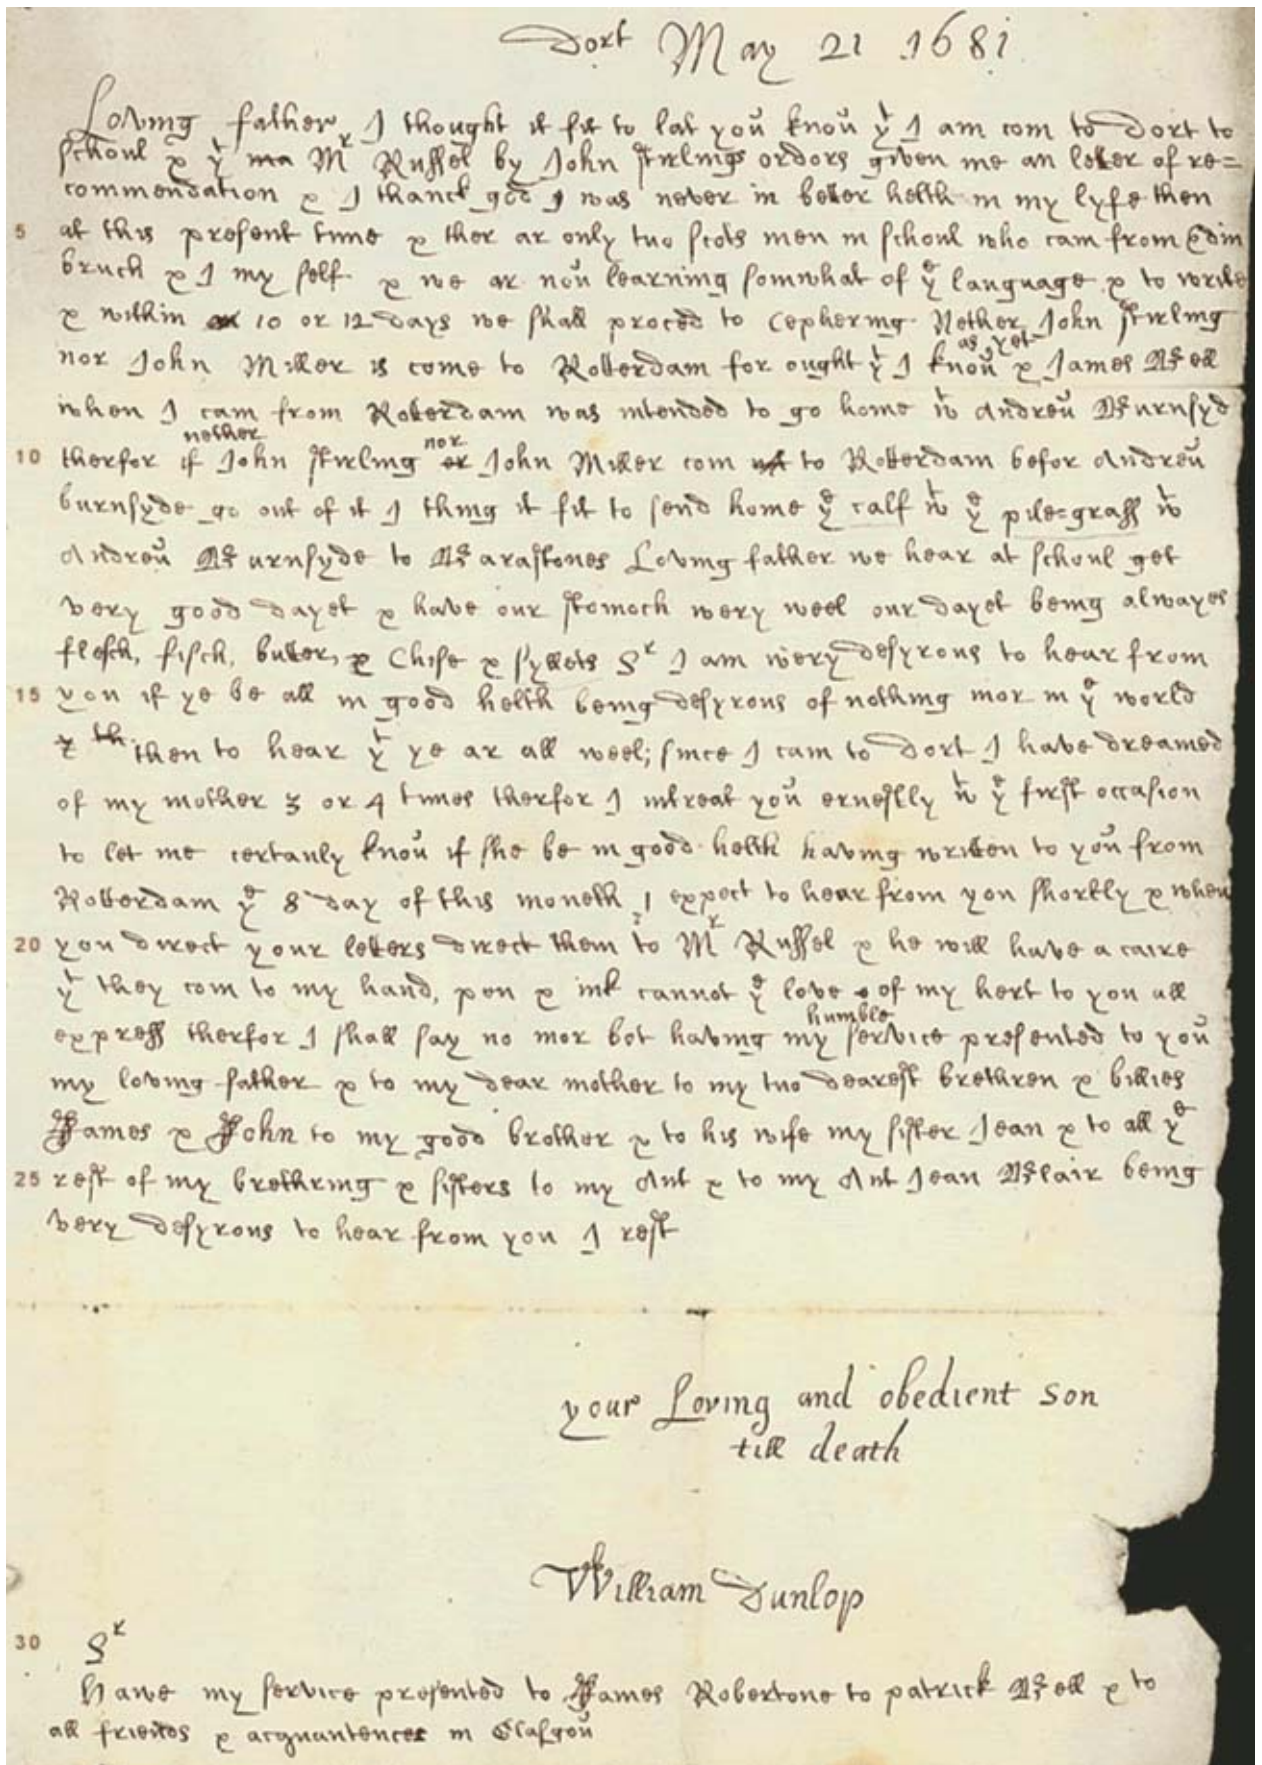 Dort May 21 1681
Loving father I thought it fit to lat you knou yt I am com to Dort to
schoul & yt Mr Russel by John stirlings ordors given me an letter of re=
commendation & I thanck god I was never in better helth in my lyfe then
5 at this present time & ther ar only tuo scots men in schoul who cam from Edin
bruch & I my self & we ar nou learning somwhat of ye language & to write
& within 10 or 12 days we shall proced to Cephering Nether John stirling
as yet
nor John Miller is come to Rotterdam for ought yt I knou & James Bell
when I cam from Roterdam was intended to go home wt Andreu Burnsyd
nether nor
10 therfor if John stirling or John Miller com to Rotterdam befor Andreu
burnsyde go out of it I thing it fit to send home ye calf wt ye pile=grass wt
Andreu Burnsyde to Barastones Loving father we hear at schoul get
very good dayet & have our stomoch wery weel our dayet being alwayes
flesch, fisch, butter, & Chise & syllets Sr I am wery desyrous to hear from
15 you if ye be all in good helth being desyrous of nothing mor in ye world
then to hear yt ye ar all weel; since I cam to Dort I have dreamed
of my mother 3 or 4 times therfor I intreat you ernestly wt ye first occasion
to let me certanly knou if she be in good helth having written to you from
Rotterdam ye 8 day of this moneth I expect to hear from you shortly & when
20 you direct your letters direct them to Mr Russel & he will have a caire
yt they com to my hand, pen & ink cannot ye love of my hert to you all
humble
express therfor I shall say no mor bot having my service presented to you
my loving father & to my dear mother to my tuo dearest brethren & billies
James & John to my good brother & to his wife my sister Jean & to all ye
25 rest of my brethring & sisters to my Ant & to my Ant Jean Blair being
very desyrous to hear from you I rest
your Loving and obedient son
till death
William Dunlop
30 Sr
Hawe my service presented to James Robertone to patrick Bell & to
all friends & acquantences in Glasgou